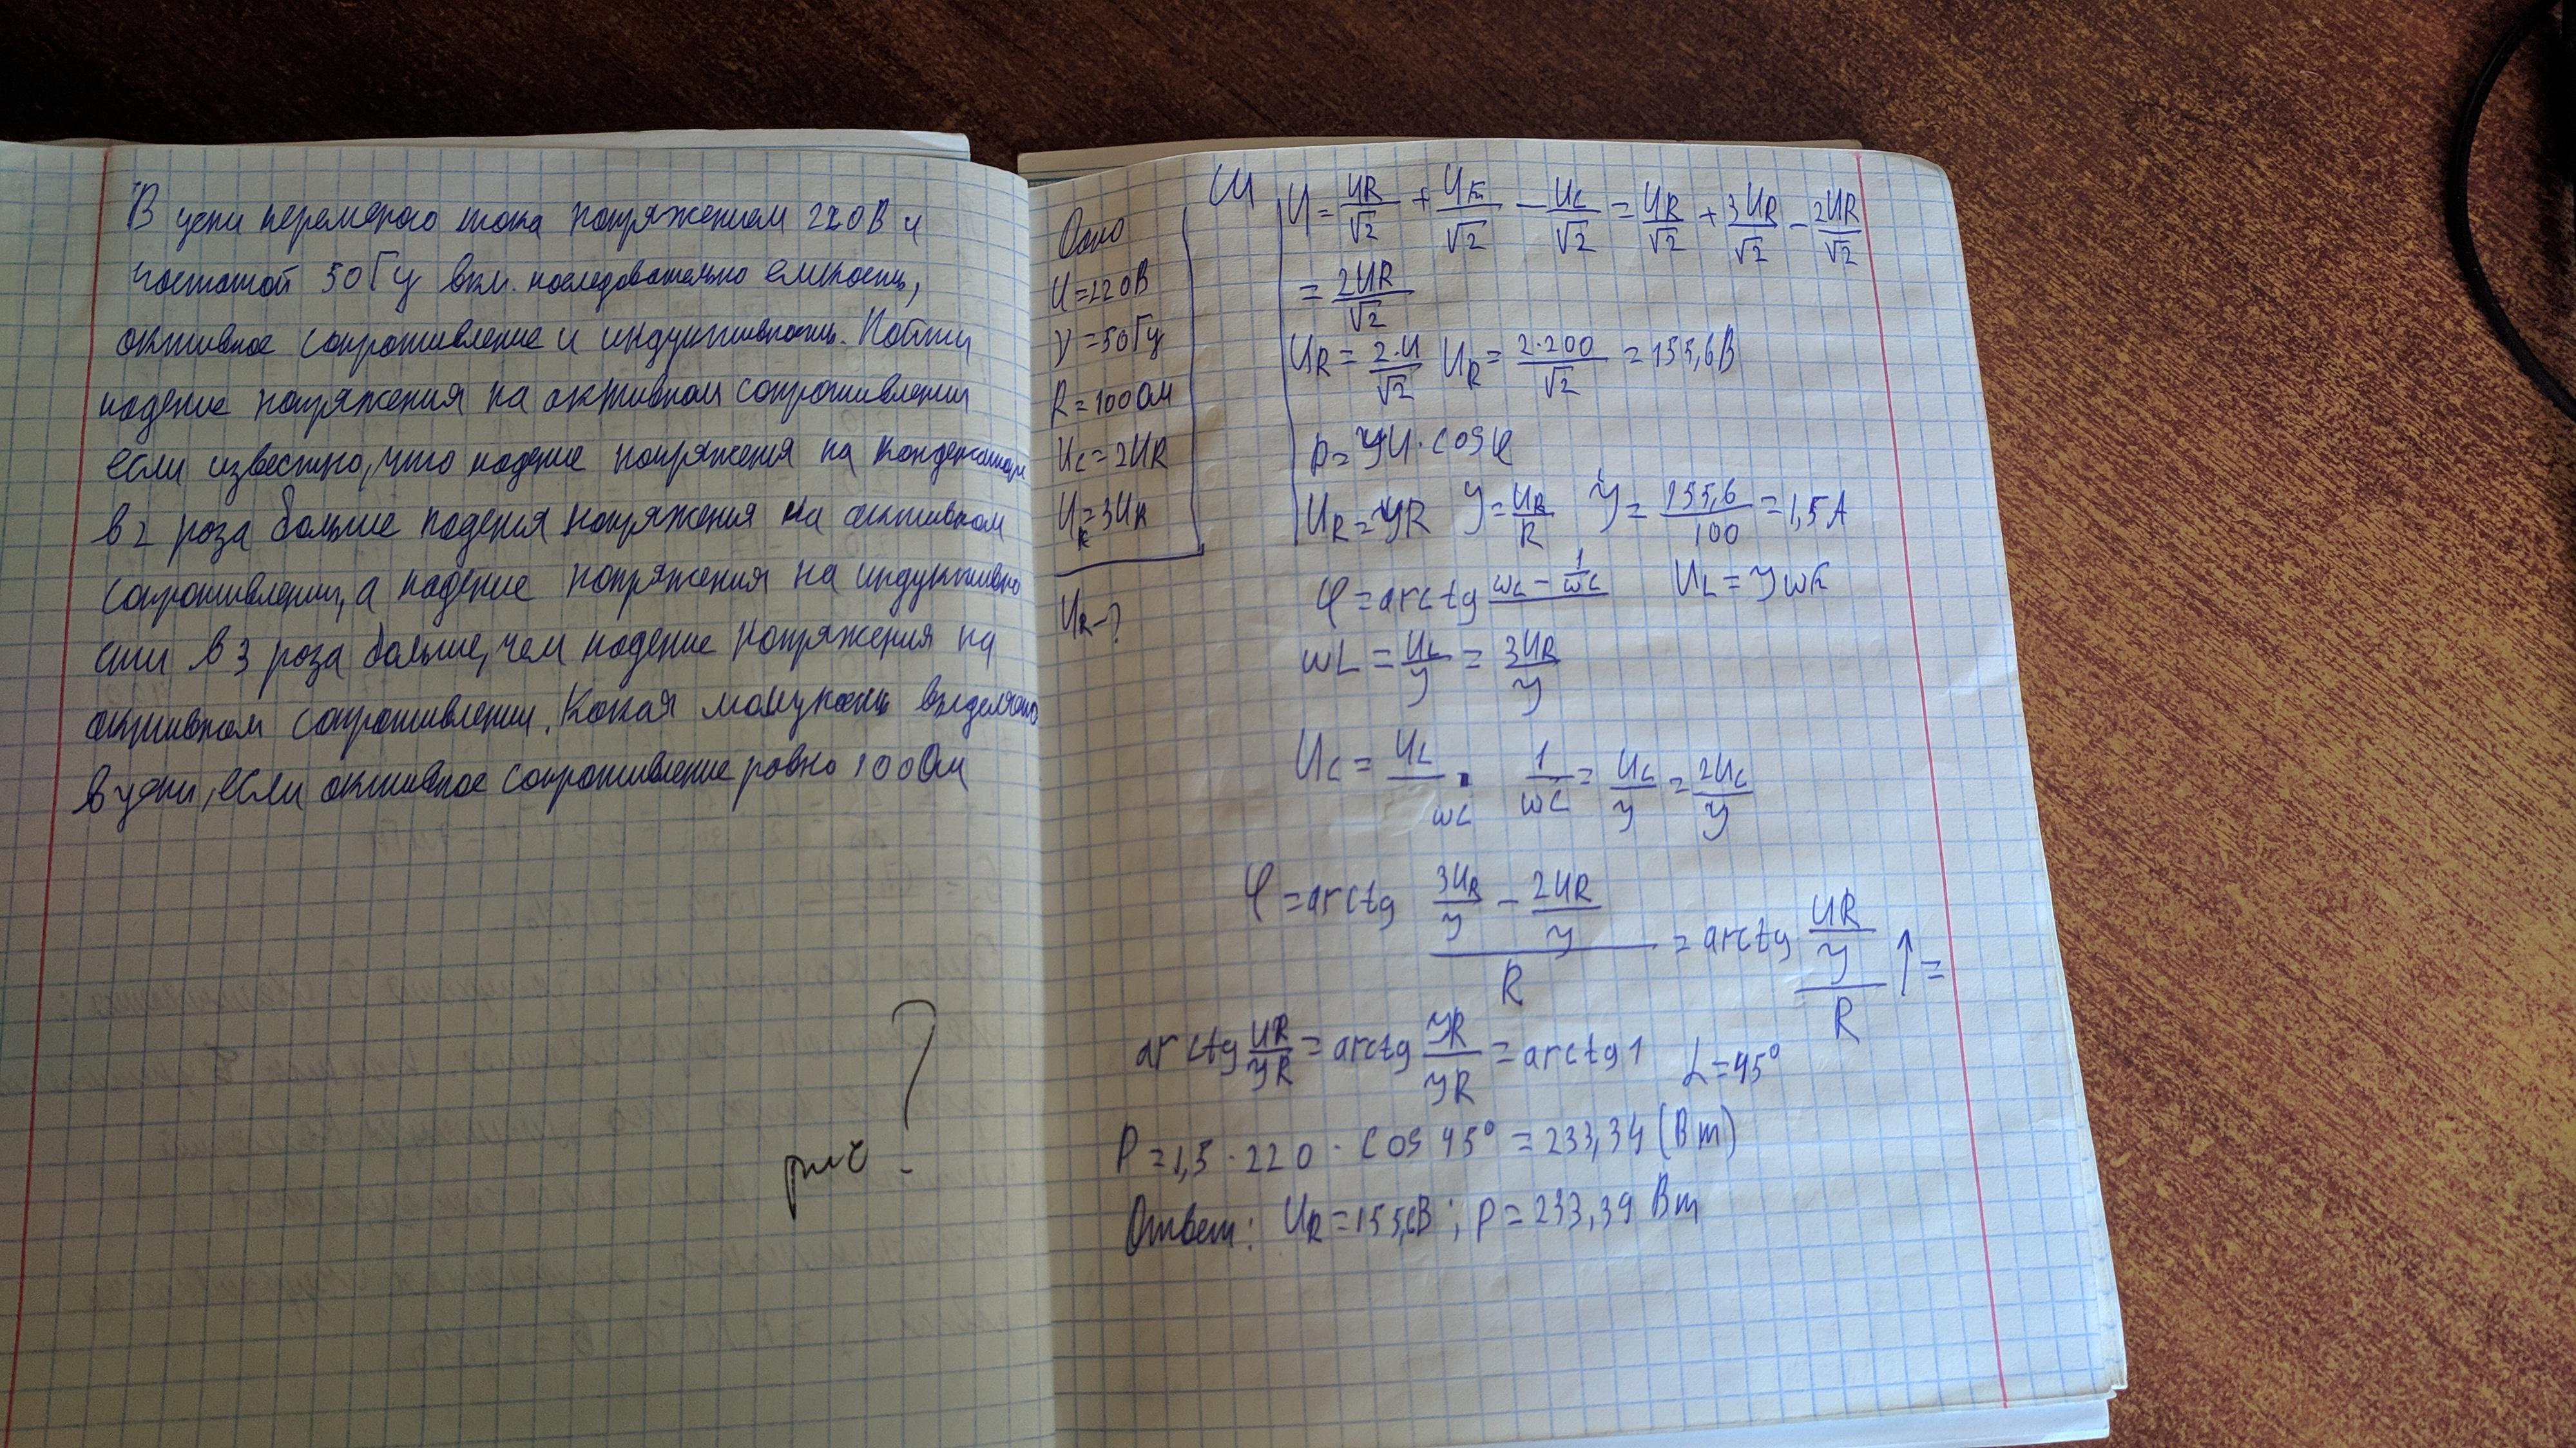 В цепи переменого тока напряжением 220В и
частотой 50Гц вкл. последовательно емкость,
активное сопротивление и индуктивность. Найти
падение напряжения на активном сопротивлении
если известно, что падение напряжения на конденсаторе
в 2 раза больше падения напряжения на активном
сопротивлении, а падение напряжения на индуктивно
сти в 3 раза больше, чем падение напряжения на
активном сопротивлении. Какая мощность выделяется
в цепи, если активное сопротивление равно 100Ом
рис ?
Дано
U=220В
ν=50Гц
R=100Ом
Uc=2UR
U=3UR
UR-?
СИ
U = UR/√2 + UL/√2 - Uc/√2 = UR/√2 + 3UR/√2 - 2UR/√2
= 2UR/√2
UR = 2·U/√2 UR = 2·200/√2 = 155,6В
P = IU·cosφ
UR = IR I = UR/R I = 155,6/100 = 1,5А
φ = arctg (ωL - 1/ωC) UL = IωL
ωL = UL/I = 3UR/I
Uc = UL/ωC 1/ωC = Uc/I = 2Uc/I
φ = arctg (3UR/I - 2UR/I)/R = arctg (UR/I)/R ↑ =
arctg UR/IR = arctg IR/IR = arctg 1 L=45°
P = 1,5·220·cos 45° = 233,34 (Вт)
Ответ: UR = 155,6В; P = 233,39 Вт